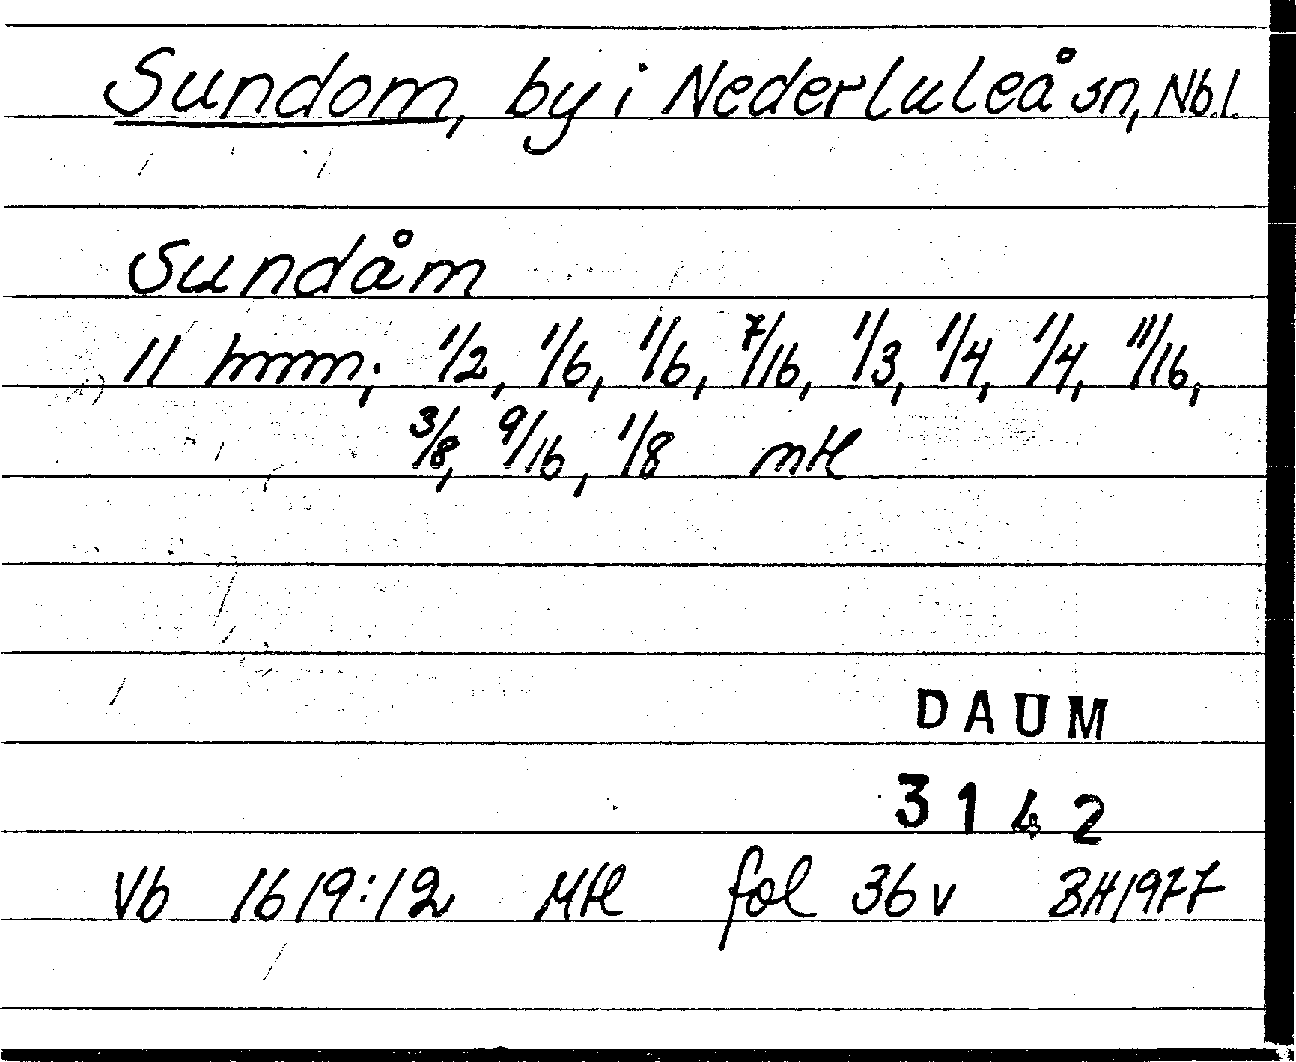 Sundom, by i Nederluleå sn, Nb.l.
Sundåm
11 hmn; 1/2, 1/6, 1/6, 7/16, 1/3, 1/4, 1/4, 11/16,
3/8, 9/16, 1/8 mtl
DAUM
3142
Vb 1619:12 Mtl fol 36v BH1977